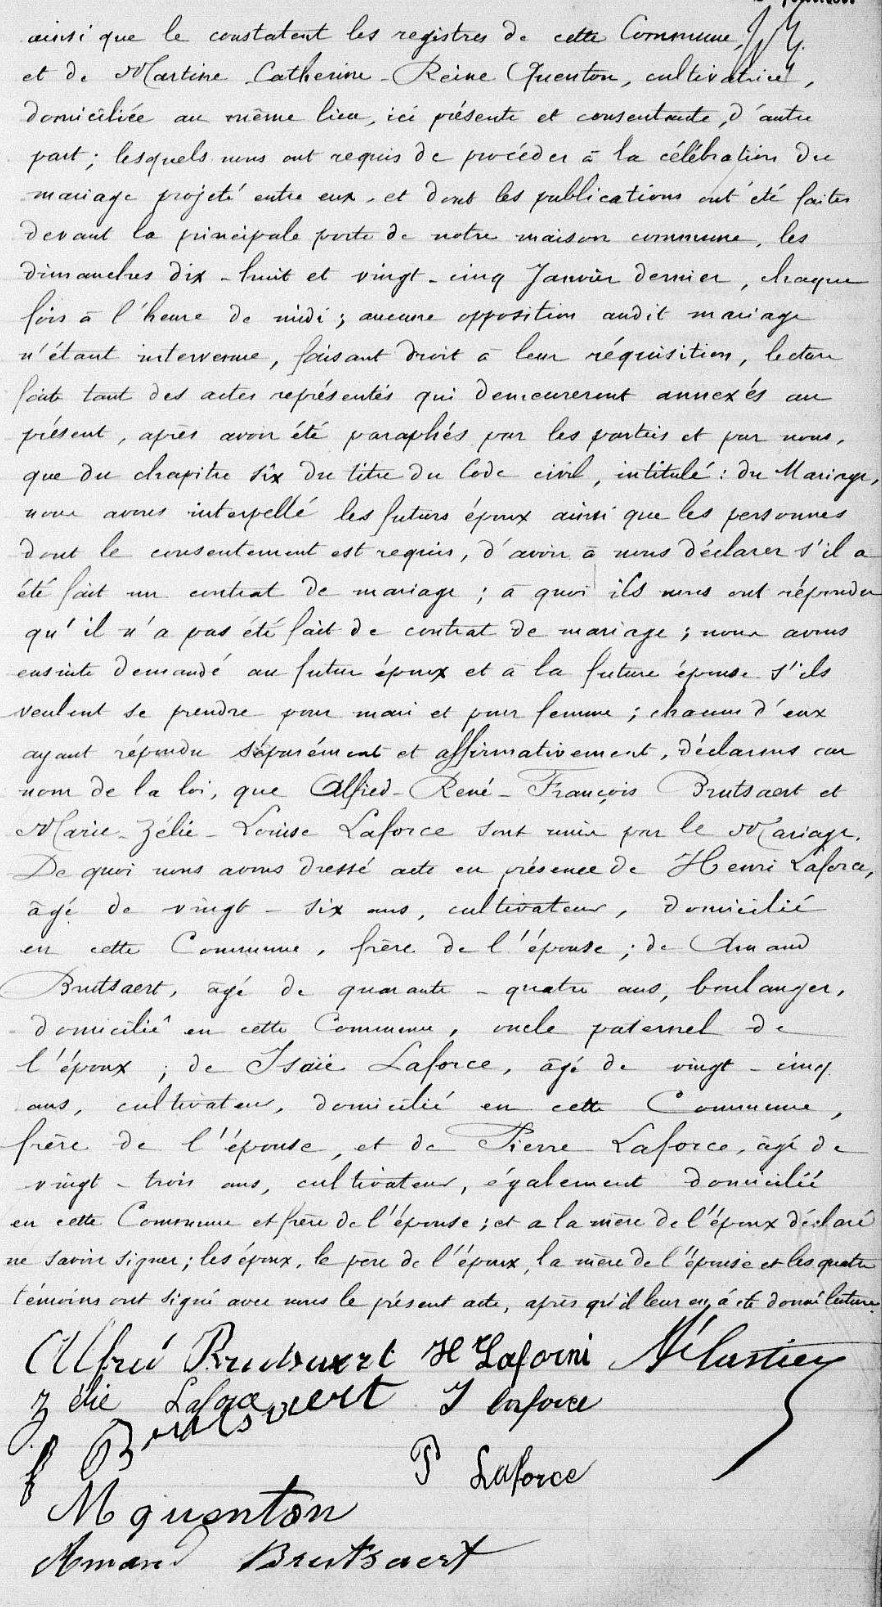 ainsi que le constatent les registres de cette Commune,
et de Martine-Catherine-Reine Quenton, cultivatrice,
domiciliée au même lieu, ici présente et consentante, d'autre
part; lesquels nous ont requis de procéder à la célébration du
mariage projeté entre eux, et dont les publications ont été faites
devant la principale porte de notre maison commune, les
dimanches dix-huit et vingt-cinq Janvier dernier, chaque
fois à l'heure de midi; aucune opposition audit mariage
n'étant intervenue, faisant droit à leur réquisition, lecture
faite tant des actes représentés qui demeureront annexés au
présent, après avoir été paraphés par les parties et par nous,
que du chapitre six du titre du Code civil, intitulé: du Mariage,
nous avons interpellé les futurs époux ainsi que les personnes
dont le consentement est requis, d'avoir à nous déclarer s'il a
été fait un contrat de mariage; à quoi ils nous ont répondu
qu'il n'a pas été fait de contrat de mariage; nous avons
ensuite demandé au futur époux et à la future épouse s'ils
veulent se prendre pour mari et pour femme; chacun d'eux
ayant répondu séparément et affirmativement, déclarons au
nom de la loi, que Alfred-René-François Brutsaert et
Marie-Zélie-Louise Laforce sont unis par le Mariage.
De quoi nous avons dressé acte en présence de Henri Laforce,
âgé de vingt-six ans, cultivateur, domicilié
en cette Commune, frère de l'épouse; de Amand
Brutsaert, âgé de quarante-quatre ans, boulanger,
domicilié en cette Commune, oncle paternel de
l'époux; de Isaïe Laforce, âgé de vingt-cinq
ans, cultivateur, domicilié en cette Commune,
frère de l'épouse, et de Pierre Laforce, âgé de
vingt-trois ans, cultivateur, également domicilié
en cette Commune et frère de l'épouse; et a la mère de l'époux déclaré
ne savoir signer; les époux, le père de l'époux, la mère de l'épouse et les quatre
témoins ont signé avec nous le présent acte, après qu'il leur en a été donné lecture.
Alfred Brutsaert H Laforce
Zélie Laforce I Laforce
f Brutsaert
P Laforce
M quenton
Amand Brutsaert